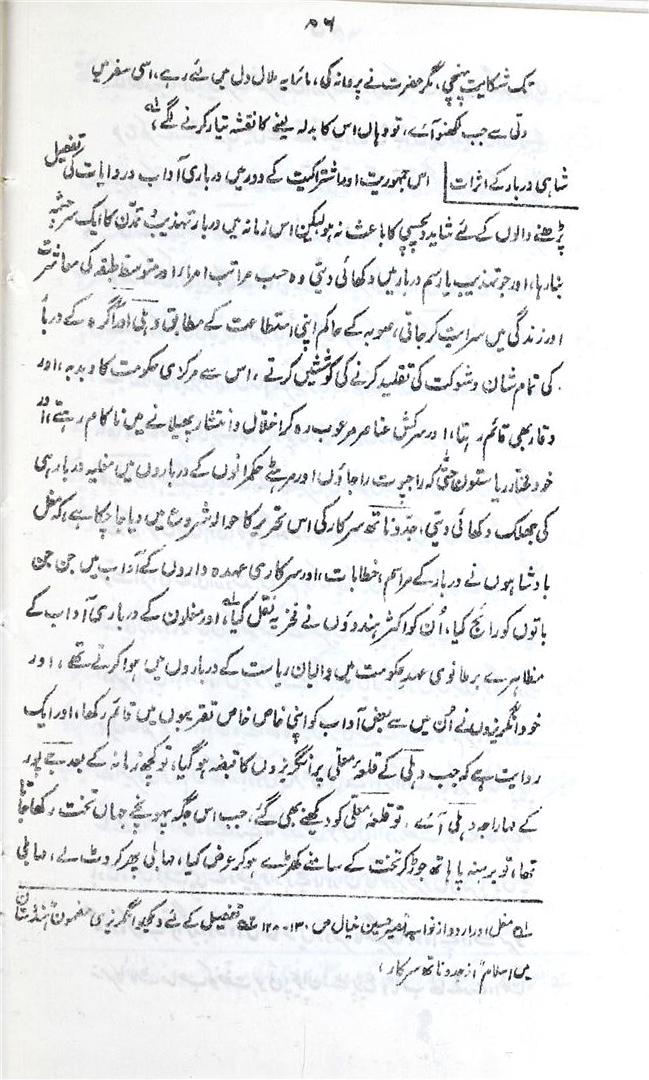 ۵۶
تک شکایت پہنچی، مگر حضرت نے پروا نہ کی، مائرا یہ ملال دل میں لئے رہے، اسی سفر میں
دلی سے جب لکھنؤ آئے، تو وہاں اس کا بدلہ لینے کا نقشہ تیار کرنے لگے،
شاہی دربار کے اثرات اس جمہوریت اور اشتراکیت کے دور میں درباری آداب و روایات کی تفصیل
پڑھنے والوں کے لئے شاید دلچسپی کا باعث نہ ہو، لیکن اس زمانہ میں دربار تہذیب و تمدن کا ایک سرچشمہ
بنا رہا، اور جو تہذیب یا رسم دربار میں دکھائی دیتی وہ حسب مراتب امراء اور متوسط طبقہ کی معاشرت
اور زندگی میں سرایت کر جاتی، صوبہ کے حاکم اپنی استطاعت کے مطابق دہلی اور آگرہ کے دربار
کی تمام شان و شوکت کی تقلید کرنے کی کوششیں کرتے، اس سے مرکزی حکومت کا دبدبہ، اور
وقار بھی قائم رہتا، اور سرکش عناصر مرعوب رہ کر اختلال و انتشار پھیلانے میں ناکام رہتے، اور
خود مختار ریاستوں حتیٰ کہ راجپوت راجاؤں اور مرہٹے حکمرانوں کے درباروں میں مغلیہ دربار ہی
کی جھلک دکھائی دیتی، جدوناتھ سرکار کی اس تحریر کا حوالہ شروع میں دیا جا چکا ہے کہ مغل
بادشاہوں نے دربار کے مراسم، خطابات، اور سرکاری عہدہ داروں کے آداب میں جن جن
باتوں کو رائج کیا، اُن کو اکثر ہندوؤں نے فخریہ نقل کیا، اور مغلوں کے درباری آداب کے
مظاہرے برطانوی عہد حکومت میں والیان ریاست کے درباروں میں ہوا کرتے تھے، اور
خود انگریزوں نے اُن میں سے بعض آداب کو اپنی خاص خاص تقریبوں میں قائم رکھا، اور ایک
روایت ہے کہ جب دہلی کے قلعۂ معلی پر انگریزوں کا قبضہ ہو گیا، تو کچھ زمانہ کے بعد جے پور
کے مہاراجہ دہلی آئے، تو قلعۂ معلی کو دیکھنے بھی گئے، جب اس جگہ پہونچے جہاں تخت رکھا جاتا
تھا، تو برہنہ پا ہاتھ جوڑ کر تخت کے سامنے کھڑے ہو کر عرض کیا، مہابلی پھر کروٹ لے، مہابلی
لہ مغل اور اردو از نواب نصیر حسین خیال ص ۱۳۰-۱۲۸ ۲ہ تفصیل کے لئے دیکھو انگریزی مضمون "ہندوستان
میں اسلام" از جدوناتھ سرکار،